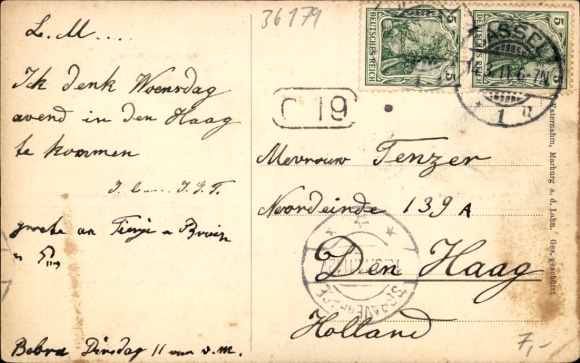 36179
L. M....
Ik denk Woensdag
avond in den Haag
te kommen
groete an
Bebra Dinsdag 11 uur v.m.
DEUTSCHES REICH
5
5
DEUTSCHES REICH
5
5
CASSEL
11.6-7N
1
C 19
Mevrouw Tenzer
Noordeinde 139 A
Den Haag
Holland
's GRAVENHAGE
Marburg a. d. Lahn. Ges. geschützt
7,-